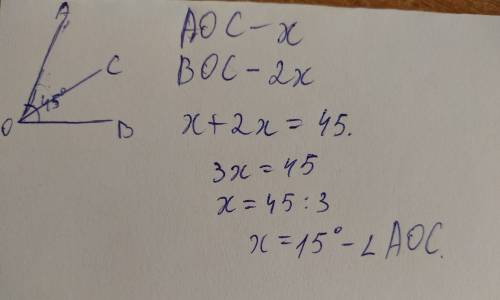 A
C
45°
O
B
AOC - x
BOC - 2x
x + 2x = 45.
3x = 45
x = 45 : 3
x = 15° - ∠AOC.